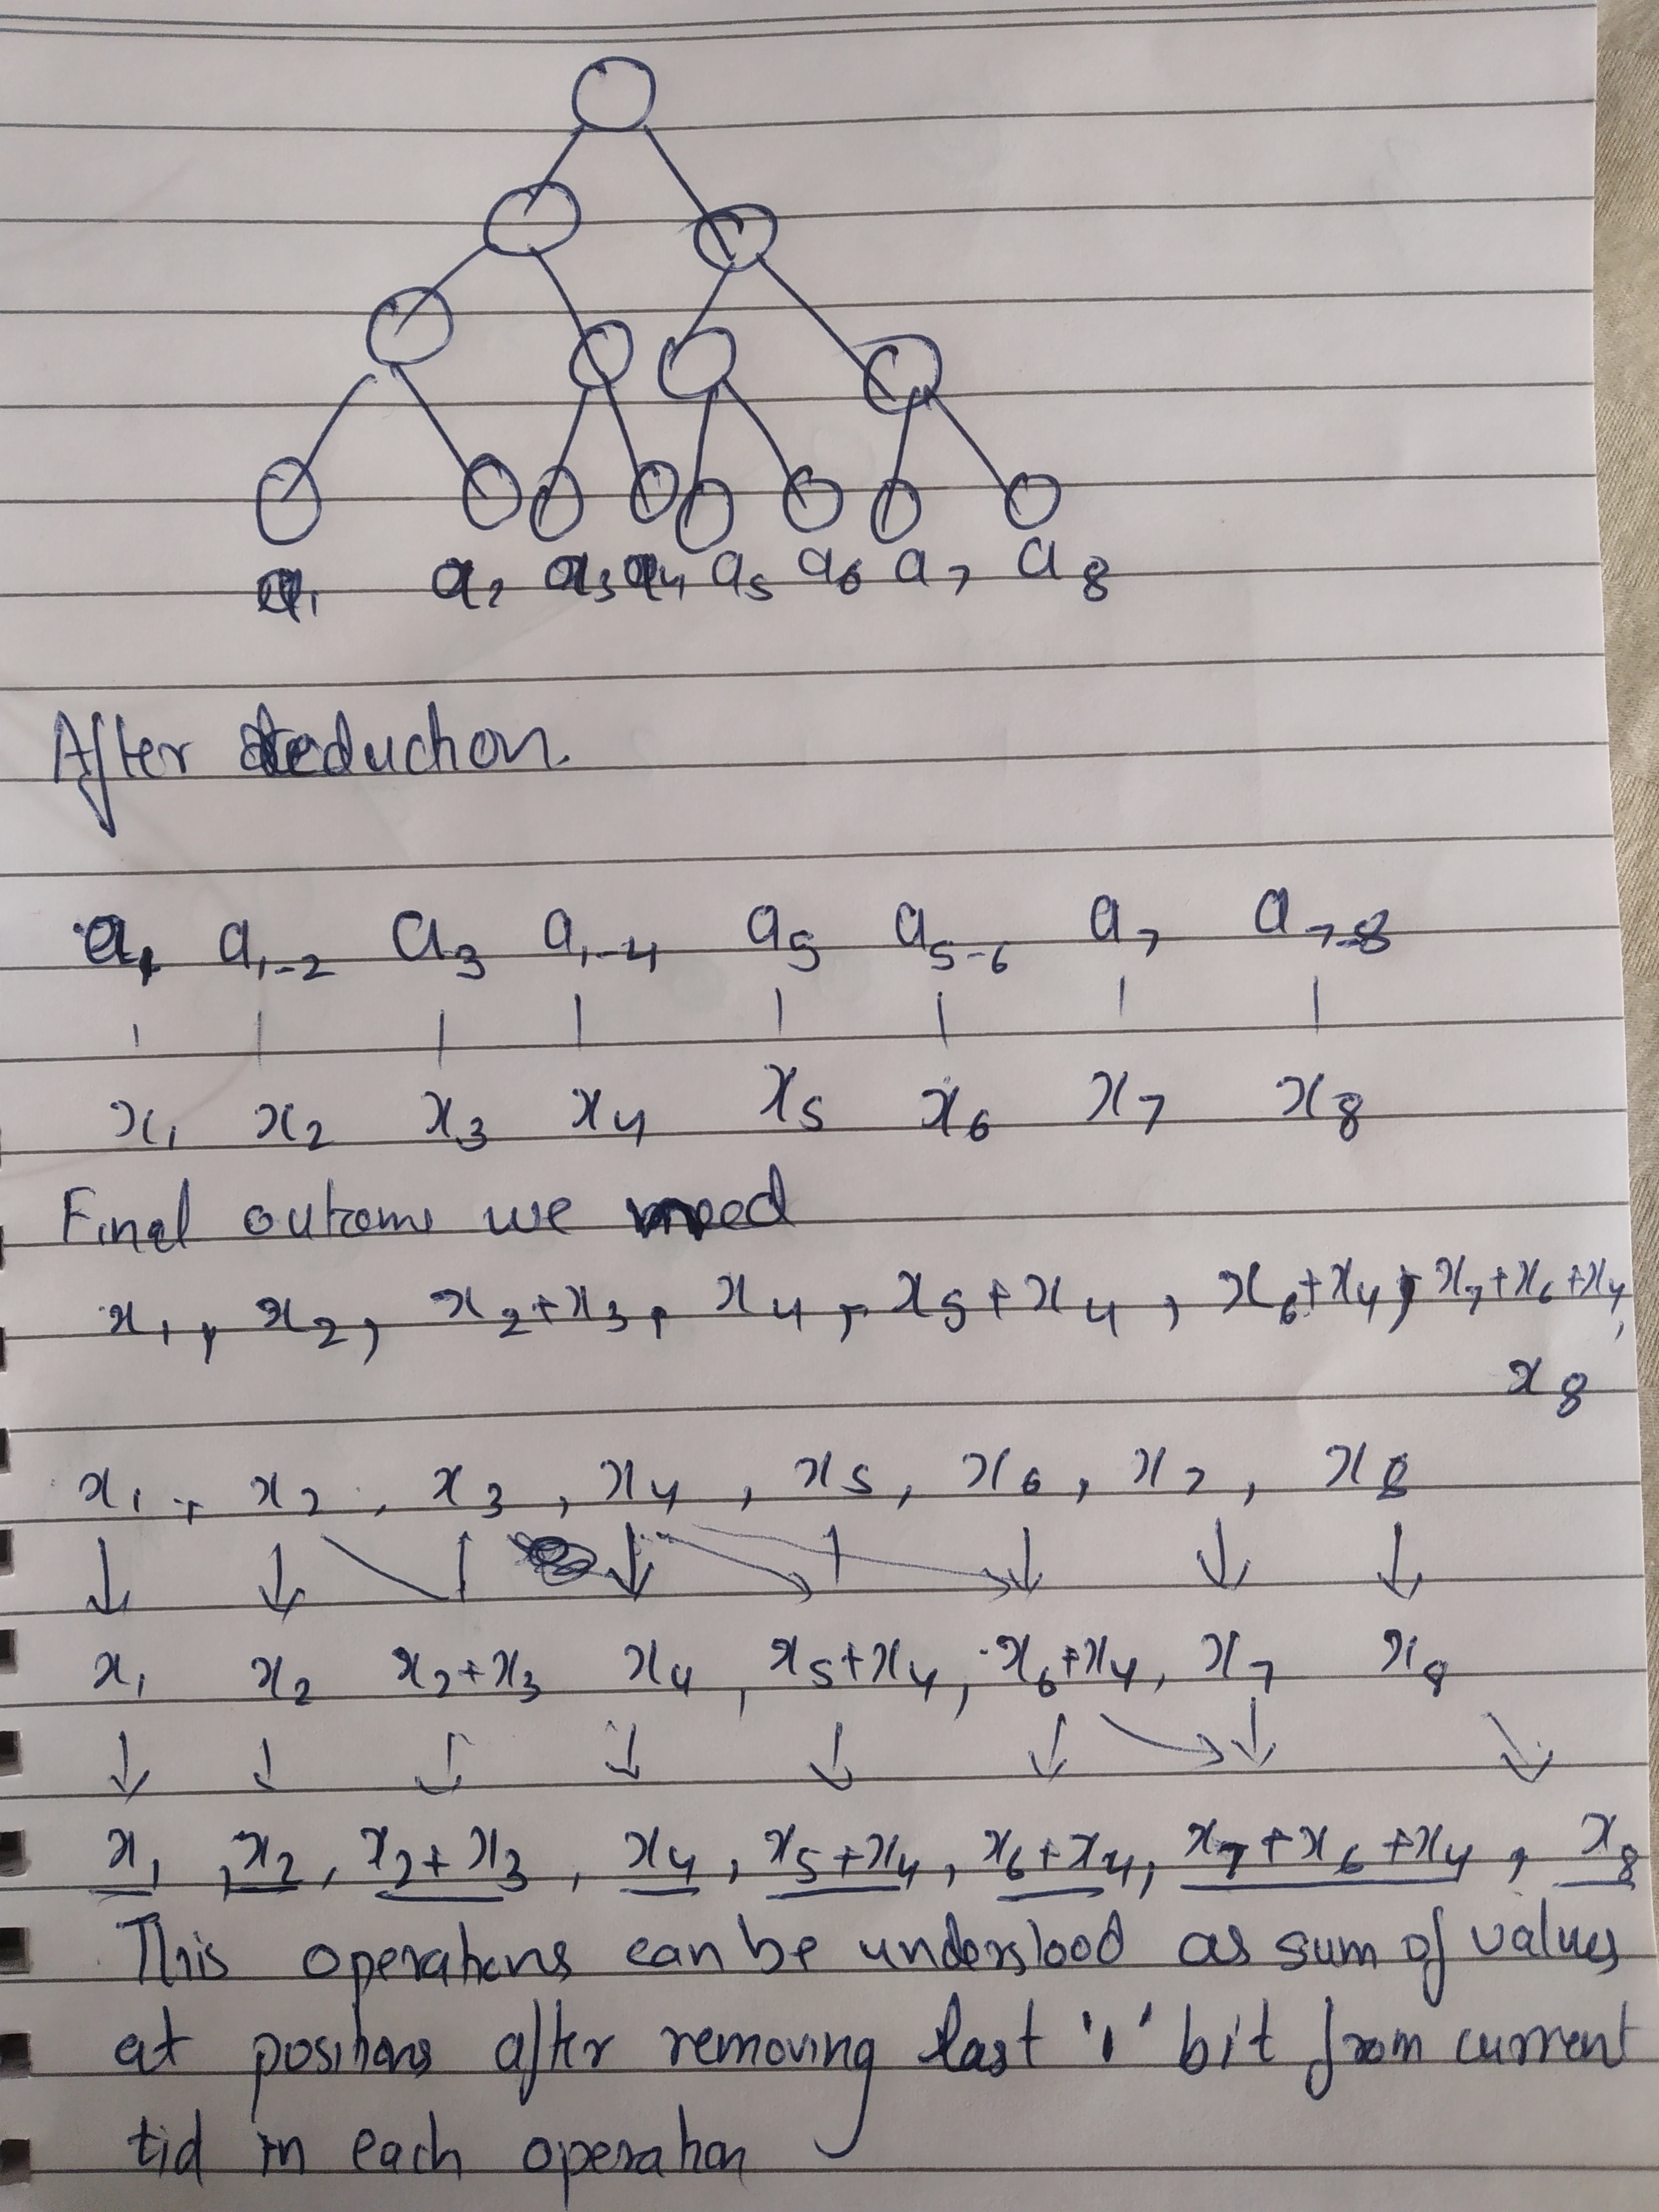 a₁ a₂ a₃ a₄ a₅ a₆ a₇ a₈
After Reduction.
a₁ a₁₋₂ a₃ a₁₋₄ a₅ a₅₋₆ a₇ a₇₋₈
x₁ x₂ x₃ x₄ x₅ x₆ x₇ x₈
Final outcome we need
x₁, x₂, x₂+x₃, x₄, x₅+x₄, x₆+x₄, x₇+x₆+x₄,
x₈
x₁, x₂, x₃, x₄, x₅, x₆, x₇, x₈
x₁ x₂ x₂+x₃ x₄, x₅+x₄, x₆+x₄, x₇ x₈
x₁, x₂, x₂+x₃, x₄, x₅+x₄, x₆+x₄, x₇+x₆+x₄, x₈
This operations can be understood as sum of values
at positions after removing last '1' bit from current
tid in each operation